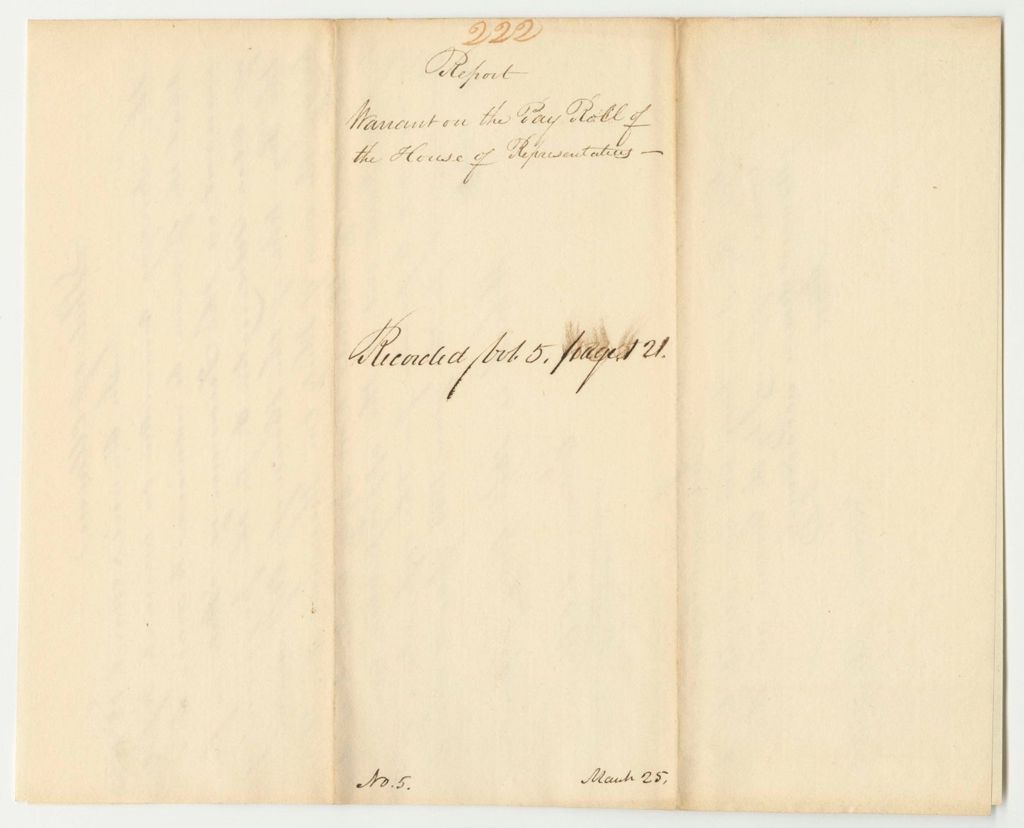 222
Report
Warrant on the Pay Roll of
the House of Representatives —
Recorded Vol. 5. page 121.
No. 5.
March 25,